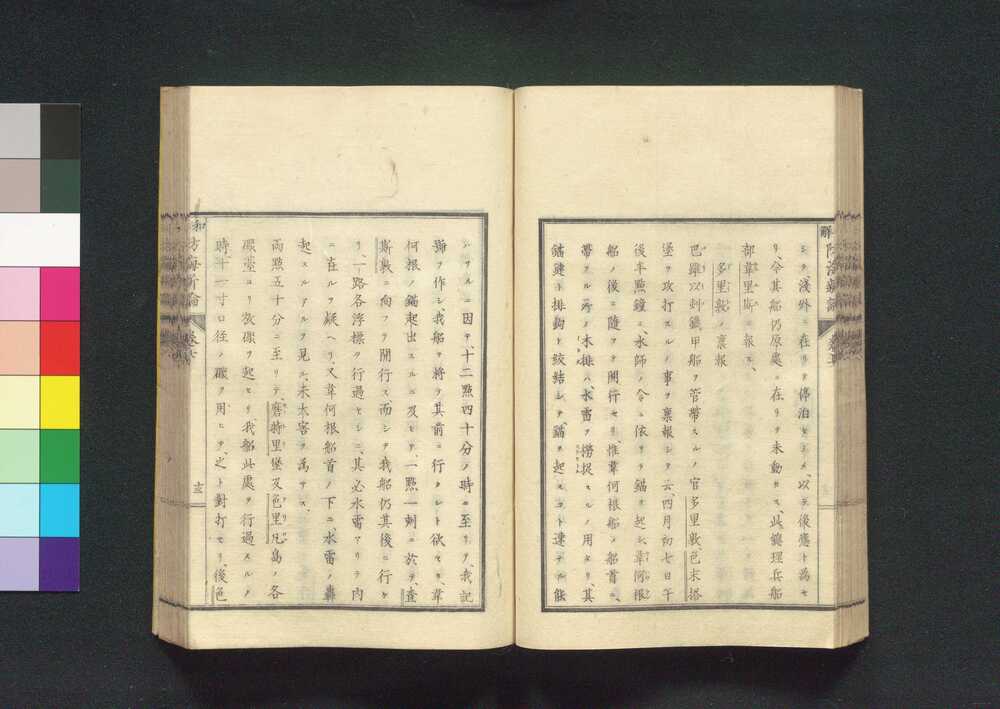 シテ浅外ニ在リテ停泊セシメ、以テ後應ト為セ
リ、今其船仍原處ニ在リテ未動セス、此總理兵船
部韋里斯ニ報ス、
多里敦ノ稟報
巴羅以剌鐵甲船ヲ管帶スルノ官多里敦、色末搭
堡ヲ攻打スルノ事ヲ稟報シテ云、四月初七日午
後半點鐘ニ、水師ノ令ニ依リテ錨ヲ起シ、韋何根
船ノ後ニ隨テヲ開行セリ、惟韋何根船ノ船首ニ、
帶フル所ノ木排ハ、水雷ヲ撈捉スルノ用ナリ、其
錨鏈ト排鉤ト絞結シテ、錨ヲ起スコト遲テル能
シアルニ因テ、十二點四十分ノ時ニ至リテ、我記
號ヲ作シ、我船ヲ將テ其前ニ行クント欲セリ、韋
何根ノ錨起出スルニ及ヒテ、一點一刺ニ於テ、查
斯敦ニ向テヲ開行ス、而シテ我船仍其後ニ行ケ
リ、一路各浮標ヲ行過セシニ、其必水雷アリテ内
ニ在ルヲ疑ヘリ、又韋何根船首ノ下ニ、水雷ノ轟
起スルアルヲ見ル、未大害ヲ為サス、
兩點五十分ニ至リテ、磨特里堡及色里凡島ノ各
礟臺ヨリ放礟ヲ起セリ、我船此處ヲ行過スルノ
時、十一寸口徑ノ礟ヲ用ヒテ、之ト對打セリ、後色